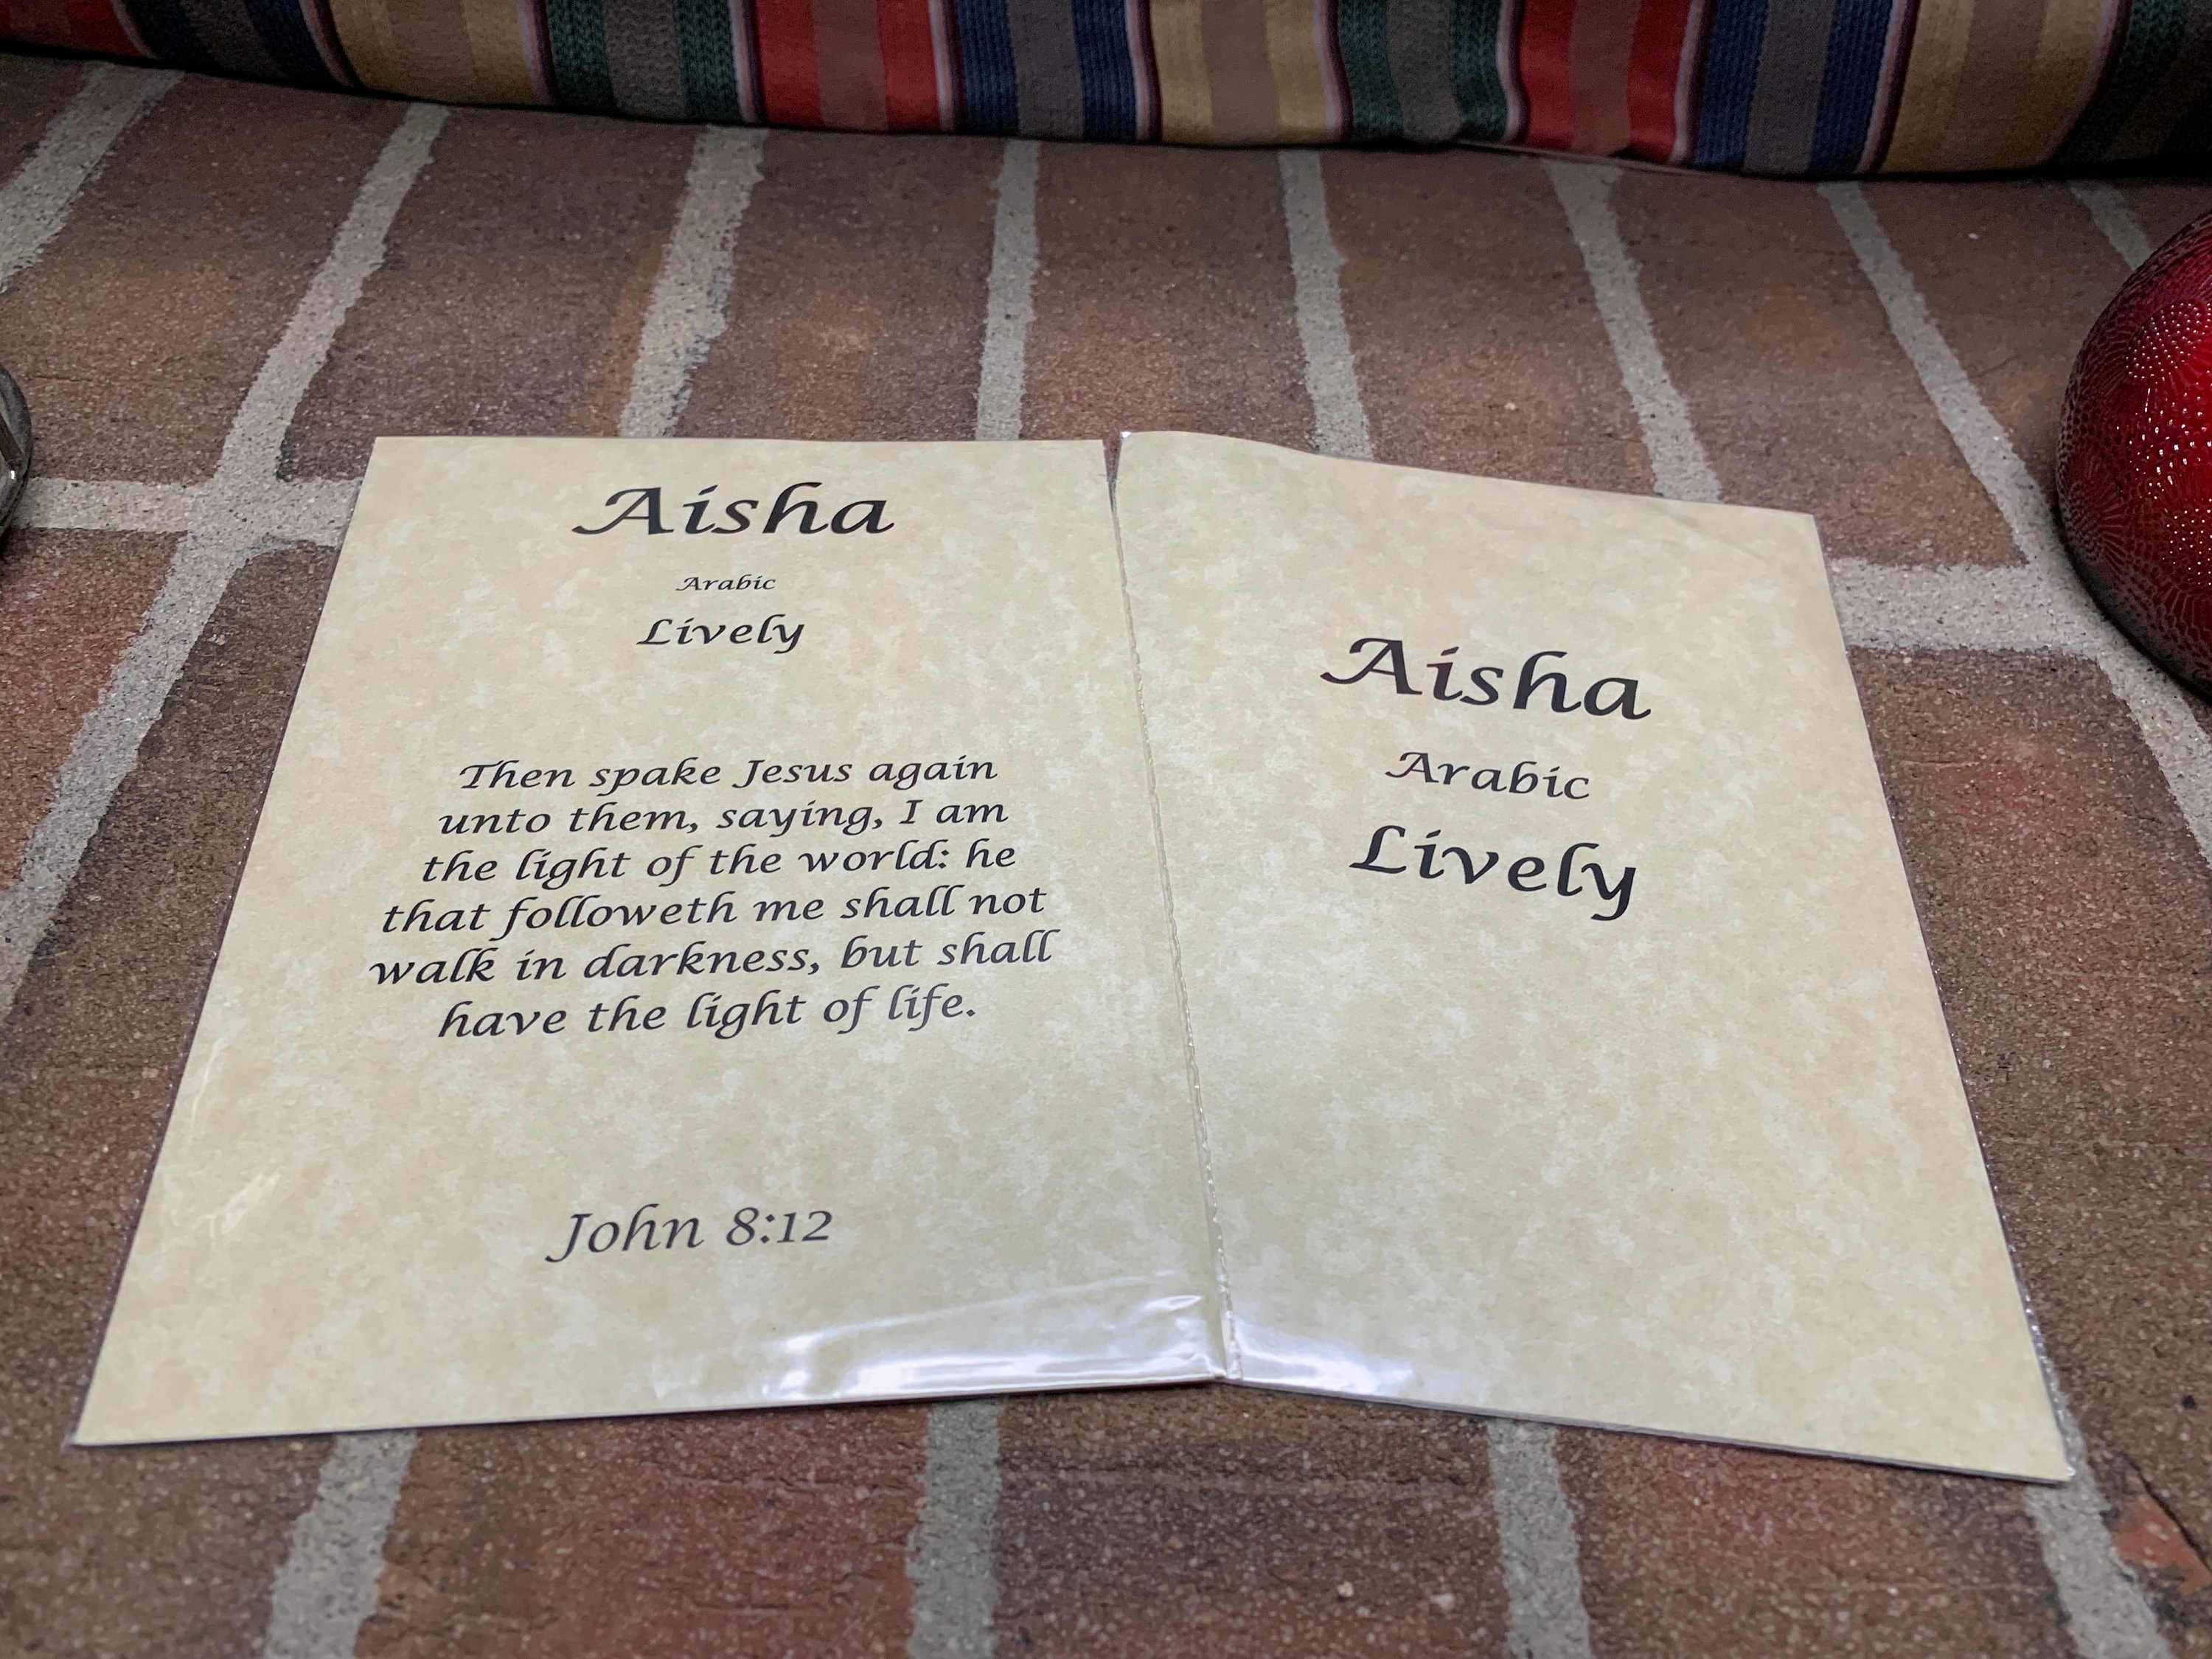 Aisha
Arabic
Lively
Then spake Jesus again
unto them, saying, I am
the light of the world: he
that followeth me shall not
walk in darkness, but shall
have the light of life.
John 8:12
Aisha
Arabic
Lively